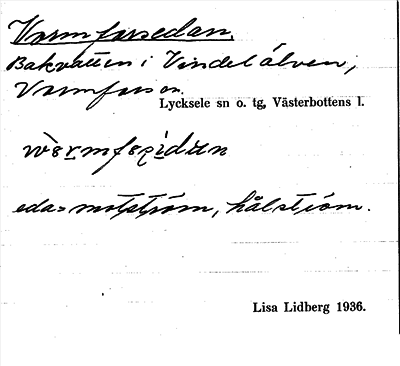 Vormforsedan.
Bakvatten i Vindelälven,
Vormforsen.
Lycksele sn o. tg, Västerbottens l.
eda = motström, hålström.
Lisa Lidberg 1936.